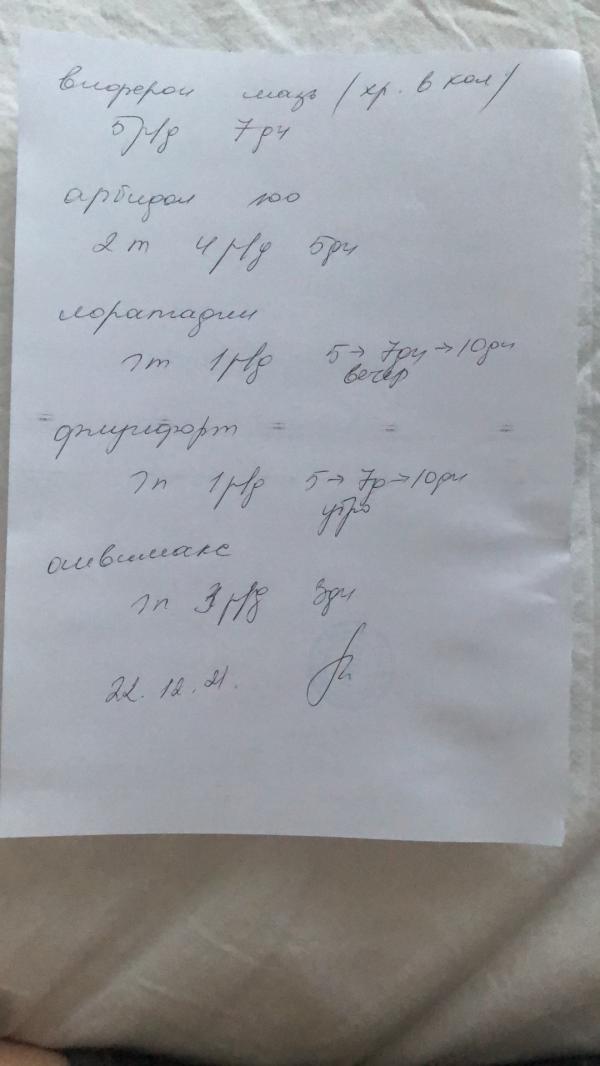 виферон мазь (хр. в хол)
5 р/д 7 дн
арбидол 100
2 т 4 р/д 5 дн
лоратадин
1 т 1 р/д 5 → 7 дн → 10 дн
вечер
флуифорт
1 п 1 р/д 5 → 7 д → 10 дн
утро
1 п 3 р/д 3 дн
22. 12. 21.